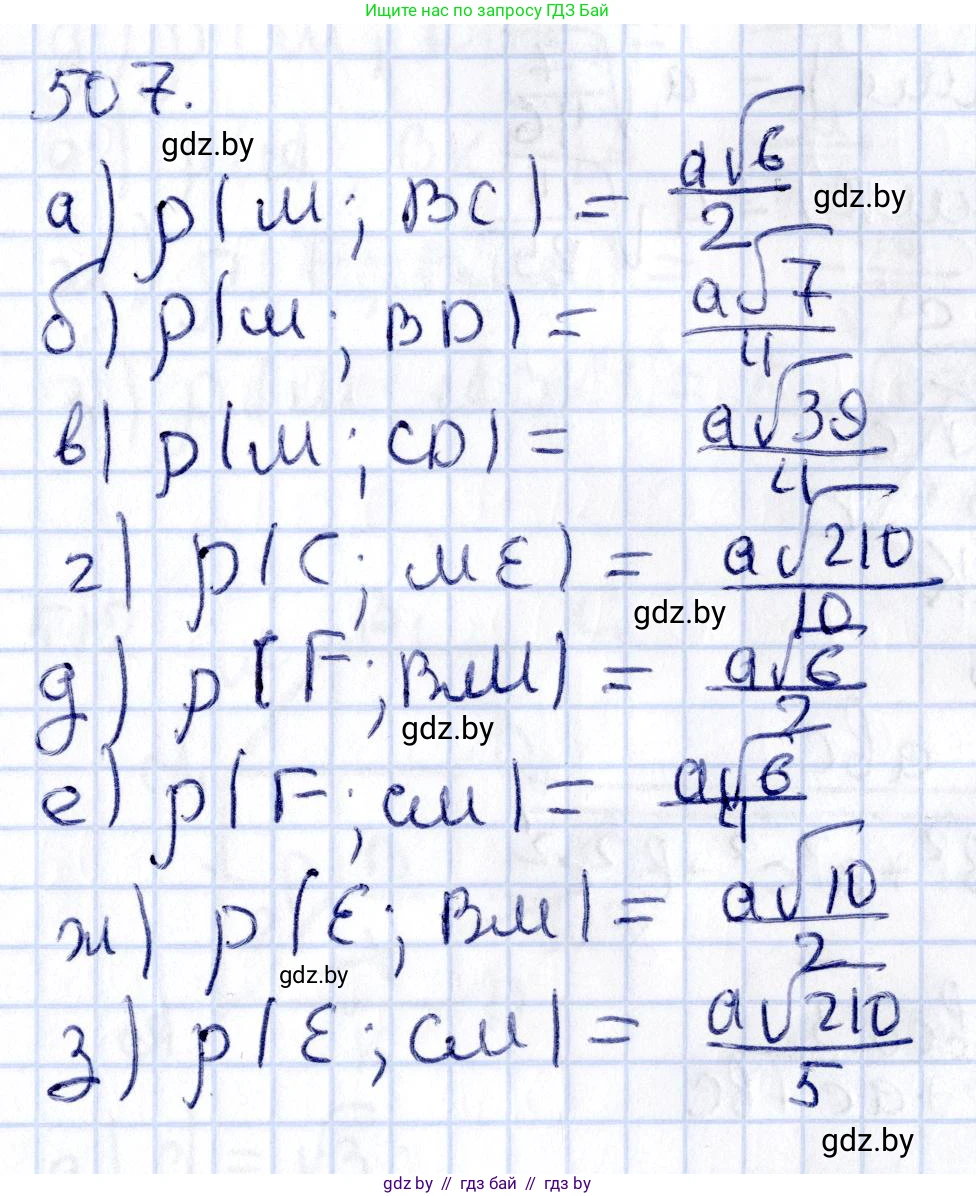 Ищите нас по запросу ГДЗ Бай
507.
gdz.by
а) ρ(M; BC) = a√6/2
gdz.by
б) ρ(M; BD) = a√7/4
в) ρ(M; CD) = a√39/4
г) ρ(C; ME) = a√210/10
gdz.by
д) ρ(F; BM) = a√6/2
gdz.by
е) ρ(F; CM) = a√6/4
ж) ρ(E; BM) = a√10/2
gdz.by
з) ρ(E; CM) = a√210/5
gdz.by
gdz.by // гдз бай // гдз by